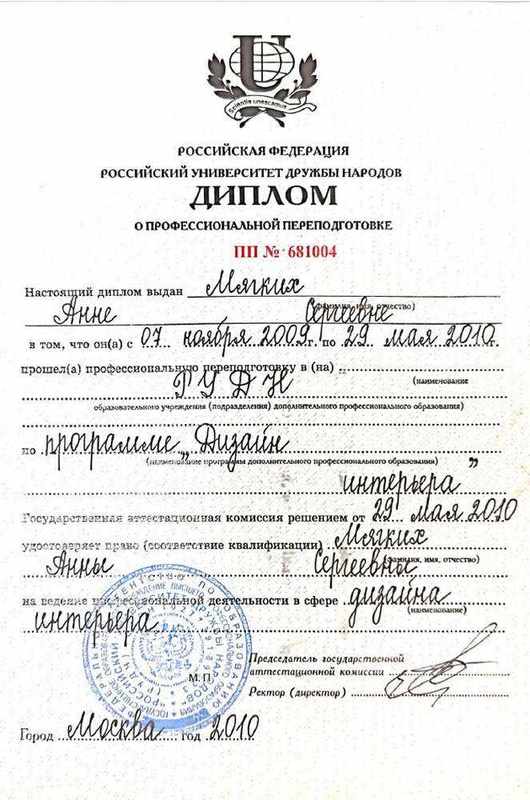 Scientia unescamus
РОССИЙСКАЯ ФЕДЕРАЦИЯ
РОССИЙСКИЙ УНИВЕРСИТЕТ ДРУЖБЫ НАРОДОВ
ДИПЛОМ
О ПРОФЕССИОНАЛЬНОЙ ПЕРЕПОДГОТОВКЕ
ПП № 681004
Настоящий диплом выдан Мягких
(фамилия, имя, отчество)
Анне Сергеевне
в том, что он(а) с 07 ноября 2009 г. по 29 мая 2010 г.
прошел(а) профессиональную переподготовку в (на)
(наименование
РУДН
образовательного учреждения (подразделения) дополнительного профессионального образования)
по программе „Дизайн
(наименование программы дополнительного профессионального образования)
интерьера”
Государственная аттестационная комиссия решением от 29 мая 2010
удостоверяет право (соответствие квалификации) Мягких
(фамилия, имя, отчество)
Анны Сергеевны
на ведение профессиональной деятельности в сфере дизайна
(наименование)
интерьера
Председатель государственной
аттестационной комиссии
М.П.
Ректор (директор)
Город Москва год 2010